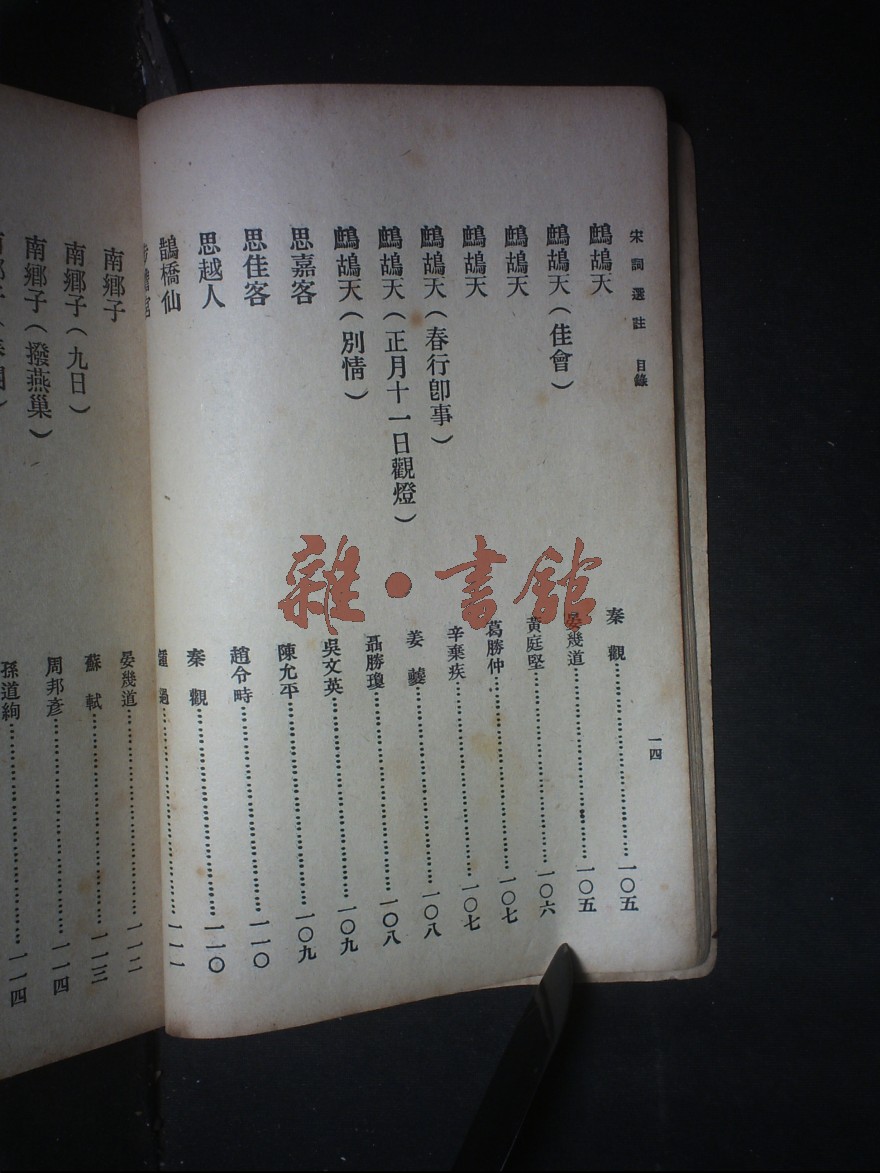 宋詞選註 目錄 一四
鷓鴣天 秦觀 一〇五
鷓鴣天(佳會) 晏幾道 一〇五
鷓鴣天 黃庭堅 一〇六
鷓鴣天 葛勝仲 一〇七
鷓鴣天(春行卽事) 辛棄疾 一〇七
鷓鴣天(正月十一日觀燈) 姜夔 一〇八
鷓鴣天(別情) 聶勝瓊 一〇八
思嘉客 吳文英 一〇九
思佳客 陳允平 一〇九
思越人 趙令時 一一〇
鵲橋仙 秦觀 一一〇
一一一
南鄉子 晏幾道 一一二
南鄉子(九日) 蘇軾 一一三
南鄉子(撥燕巢) 周邦彥 一一四
孫道絢 一一四
雜·書舘